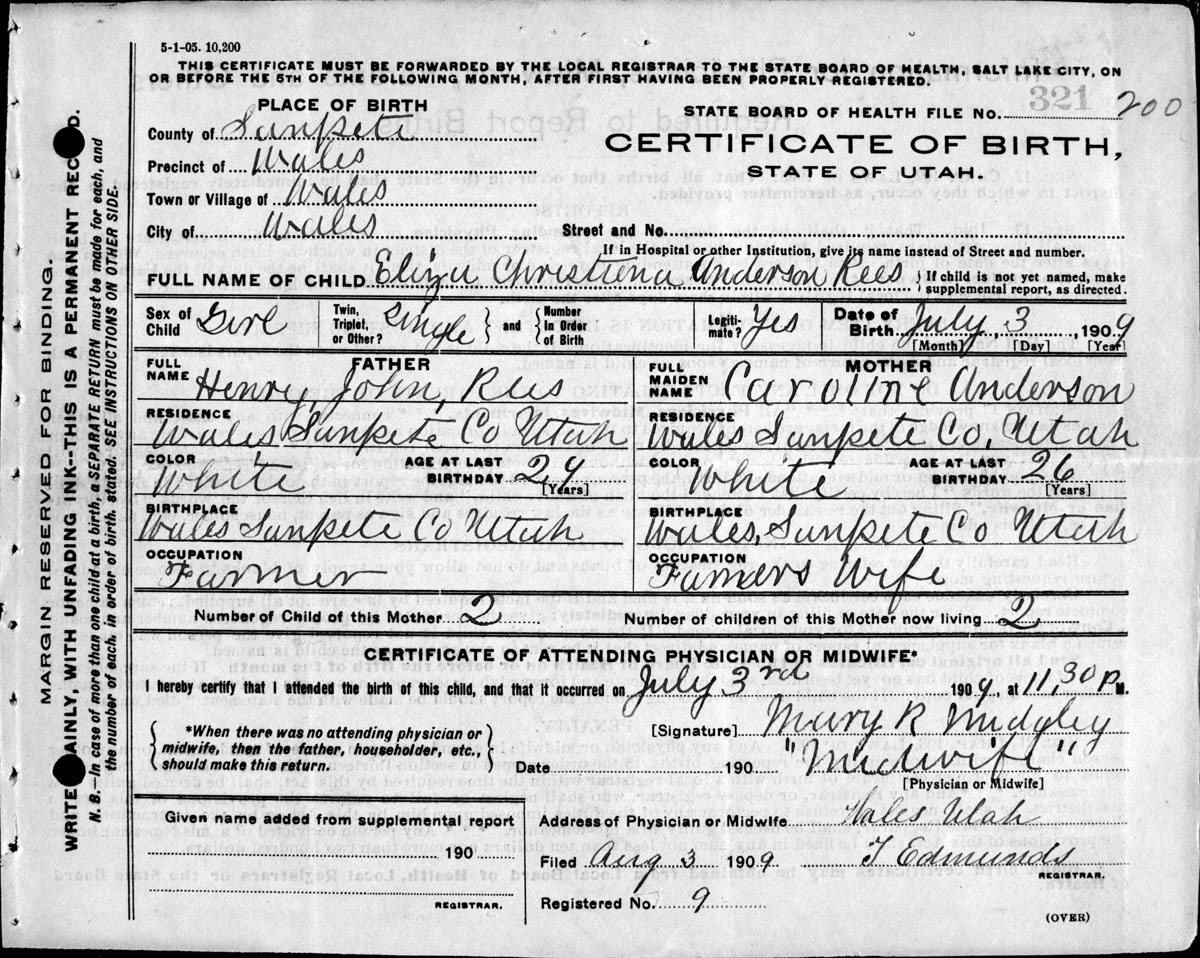 5-1-05. 10,200
THIS CERTIFICATE MUST BE FORWARDED BY THE LOCAL REGISTRAR TO THE STATE BOARD OF HEALTH, SALT LAKE CITY, ON
OR BEFORE THE 5TH OF THE FOLLOWING MONTH, AFTER FIRST HAVING BEEN PROPERLY REGISTERED.
PLACE OF BIRTH
County of Sanpete
Precinct of Wales
Town or Village of Wales
City of Wales
STATE BOARD OF HEALTH FILE NO. 321 200
CERTIFICATE OF BIRTH,
STATE OF UTAH.
Street and No.
If in Hospital or other Institution, give its name instead of Street and number.
FULL NAME OF CHILD Eliza Christiena Anderson Rees { If child is not yet named, make supplemental report, as directed.
Sex of Child Girl Twin, Triplet, or Other? Single } and { Number In Order of Birth Legitimate? Yes Date of Birth July 3 1909
[Month] [Day] [Year]
FATHER
FULL NAME Henry John, Rees
RESIDENCE
Wales Sanpete Co Utah
COLOR White AGE AT LAST BIRTHDAY 29
[Years]
BIRTHPLACE
Wales Sanpete Co Utah
OCCUPATION
Farmer
MOTHER
FULL MAIDEN NAME Caroline Anderson
RESIDENCE
Wales Sanpete Co, Utah
COLOR White AGE AT LAST BIRTHDAY 26
[Years]
BIRTHPLACE
Wales, Sanpete Co Utah
OCCUPATION
Famers Wife
Number of Child of this Mother 2 Number of children of this Mother now living 2
CERTIFICATE OF ATTENDING PHYSICIAN OR MIDWIFE*
I hereby certify that I attended the birth of this child, and that it occurred on July 3rd 1909, at 11,30 P. M.
{ *When there was no attending physician or
midwife, then the father, householder, etc.,
should make this return. }
[Signature] Mary R Midgley
Date 190 "Midwife"
[Physician or Midwife]
Given name added from supplemental report
190
REGISTRAR.
Address of Physician or Midwife Wales Utah
Filed Aug 3 1909. T Edmunds
REGISTRAR.
Registered No. 9
(OVER)
MARGIN RESERVED FOR BINDING.
WRITE AINLY, WITH UNFADING INK--THIS IS A PERMANENT REC D.
N. B.--In case of more than one child at a birth, a SEPARATE RETURN must be made for each, and
the number of each, in order of birth, stated. SEE INSTRUCTIONS ON OTHER SIDE.